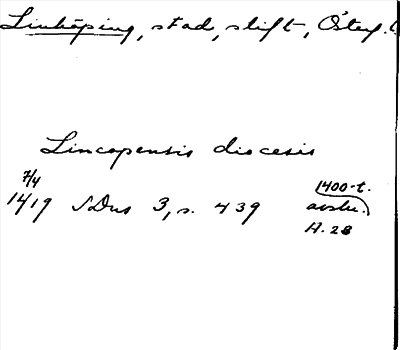 Linköping, stad, stift, Österg.
Lincopensis diocesis
7/4
1419 SDns 3, s. 439
1400-t.
avskr.
A. 28